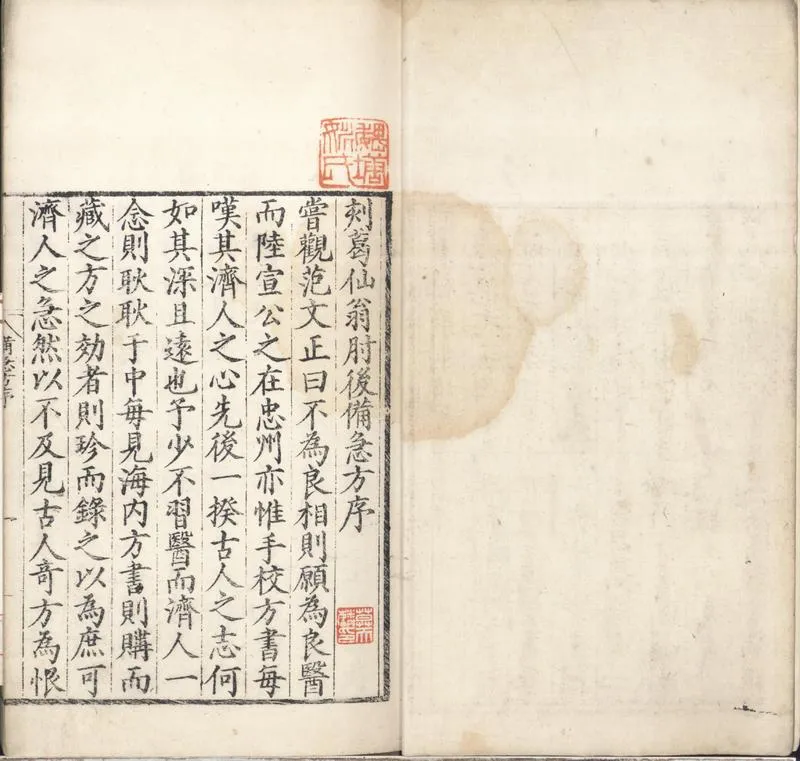 刻葛仙翁肘後備急方序
嘗觀范文正曰不為良相則願為良醫
而陸宣公之在忠州亦惟手校方書每
嘆其濟人之心先後一揆古人之志何
如其深且遠也予少不習醫而濟人一
念則耿耿于中每見海内方書則購而
藏之方之効者則珍而錄之以為庶可
濟人之急然以不及見古人竒方為恨
備急方序